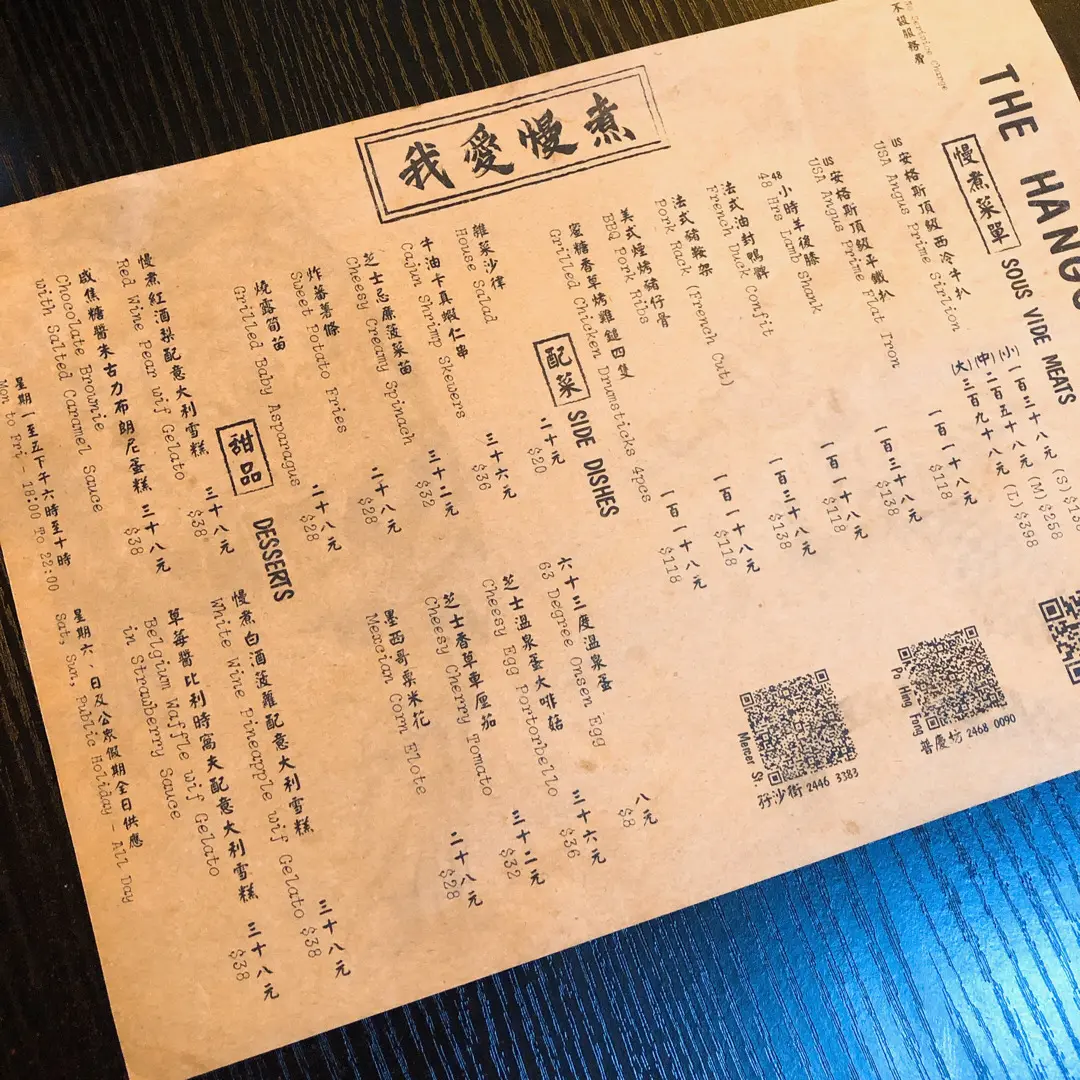 不設服務費
THE HANG
慢煮菜單 SOUS VIDE MEATS
US安格斯頂級西冷牛扒 (小)一百三十八元 (S)
USA Angus Prime Sirlion
(中)二百五十八元 (M)$258
(大)三百九十八元 (L)$398
US安格斯頂級平鐵扒 一百一十八元
USA Angus Prime Flat Iron $118
48小時羊後膝 一百三十八元
48 Hrs Lamb Shank $138
法式油封鴨髀 一百一十八元
French Duck Confit $118
法式豬鞍架 一百三十八元
Pork Rack (French Cut) $138
美式煙烤豬仔骨 一百一十八元
BBQ Pork Ribs $118
蜜糖香草烤雞鎚四隻 一百一十八元
Grilled Chicken Drumsticks 4pcs $118
Po Hing Fong
普慶坊 2468 0090
Mercer St.
孖沙街 2446 3383
我愛慢煮
配菜 SIDE DISHES
雜菜沙律 二十元
House Salad $20
牛油卡真蝦仁串 三十六元
Cajun Shrimp Skewers $36
芝士忌廉菠菜苗 三十二元
Cheesy Creamy Spinach $32
炸蕃薯條 二十八元
Sweet Potato Fries $28
燒露筍苗 二十八元
Grilled Baby Asparagus $28
六十三度溫泉蛋 八元
63 Degree Onsen Egg $8
芝士溫泉蛋大啡菇 三十六元
Cheesy Egg Portorbello $36
芝士香草車厘茄 三十二元
Cheesy Cherry Tomato $32
墨西哥粟米花 二十八元
Mexcian Corn Elote $28
甜品 DESSERTS
慢煮紅酒梨配意大利雪糕 三十八元
Red Wine Pear wif Gelato $38
咸焦糖醬朱古力布朗尼蛋糕 三十八元
Chocolate Brownie $38
with Salted Caramel Sauce
慢煮白酒菠蘿配意大利雪糕 三十八元
White Wine Pineapple wif Gelato $38
草莓醬比利時窩夫配意大利雪糕 三十八元
Belgium Waffle wif Gelato $38
in Strawberry Sauce
星期一至五下午六時至十時
Mon to Fri - 18:00 To 22:00
星期六、日及公眾假期全日供應
Sat, Sun, Public Holiday - All Day